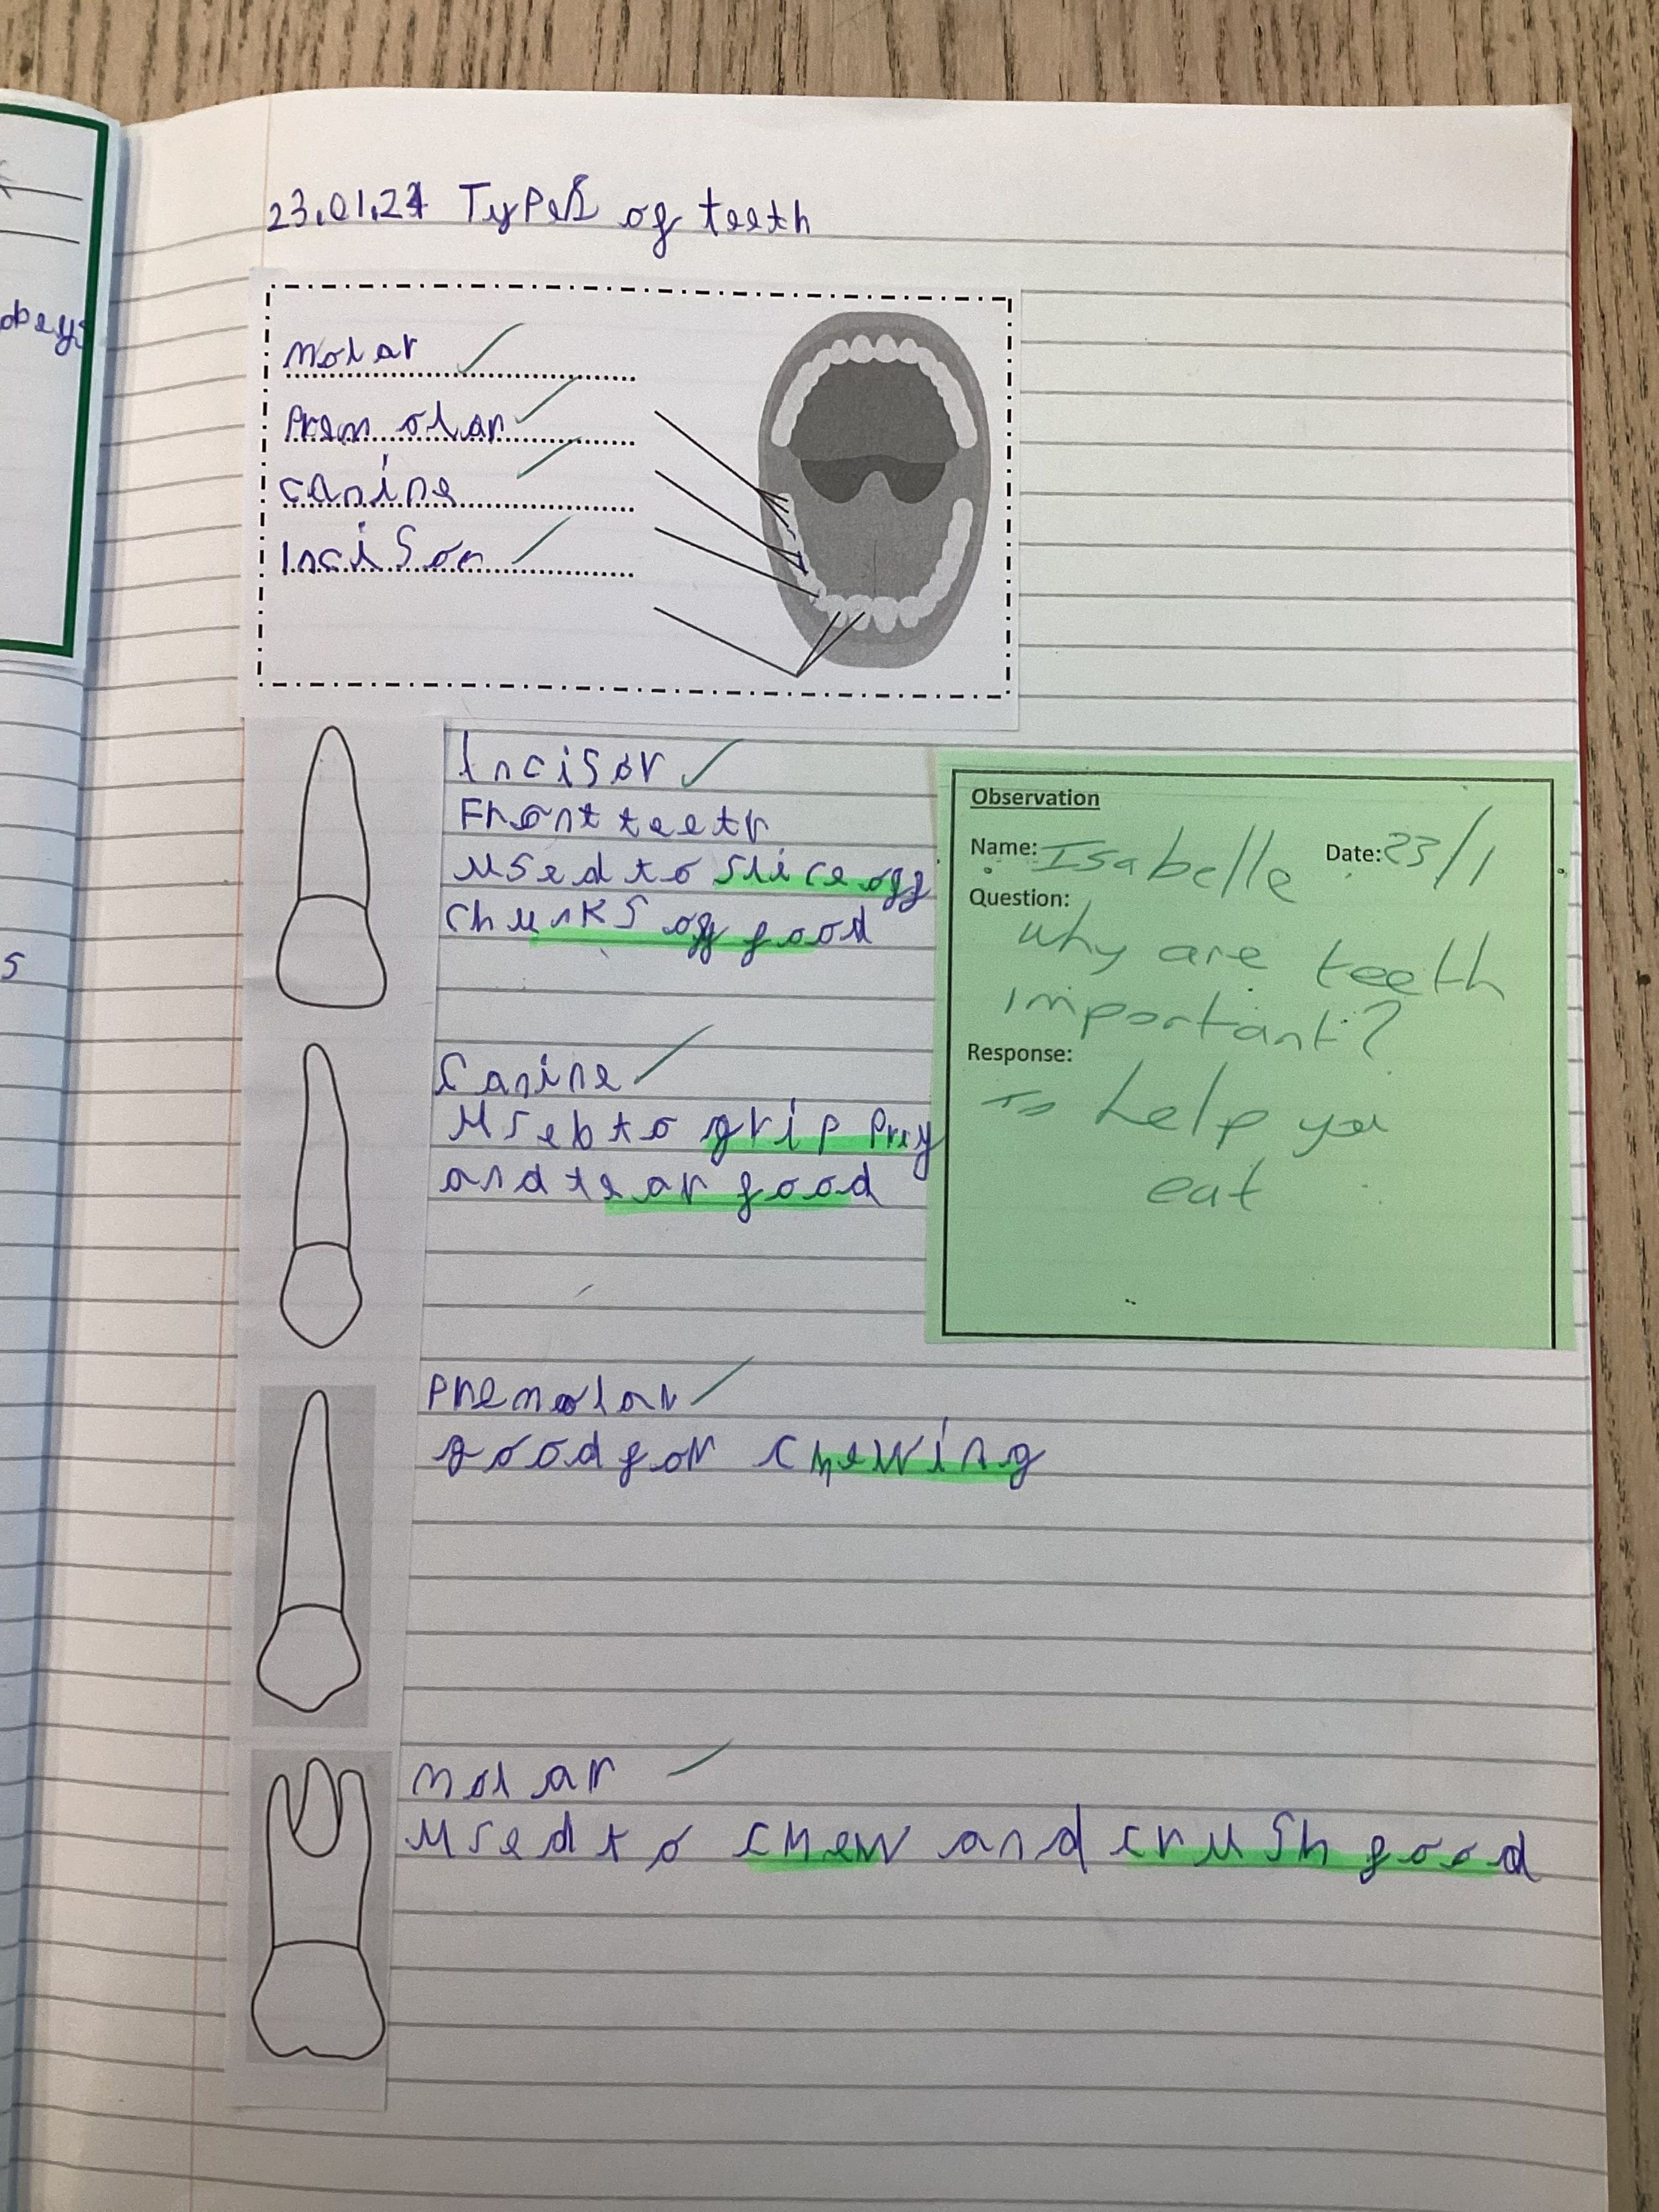 Types of teeth
obeys
molar
Premolar
canine
Incisor
Incisor
Front teeth
Used to slice off
chunks off food
Canine
Useb to grip prey
and tear food
Premolar
good for chewing
molar
Used to chew and crush food
Observation
Name: Isabelle Date: 23/1
Question:
Why are teeth
important?
Response:
To help you
eat
s